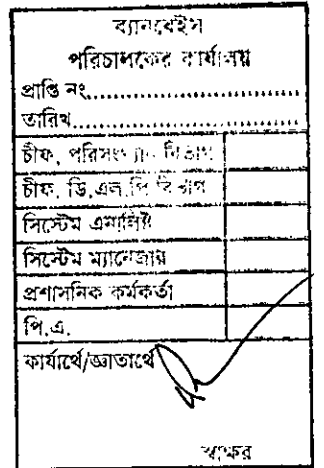 ব্যানবেইস
পরিচালকের কার্যালয়
প্রাপ্তি নং
তারিখ
চীফ, পরিসংখ্যান বিভাগ
চীফ, ডি,এল,পি বিভাগ
সিস্টেম এনালিষ্ট
সিস্টেম ম্যানেজার
প্রশাসনিক কর্মকর্তা
পি.এ.
কার্যার্থে/জ্ঞাতার্থে
স্বাক্ষর